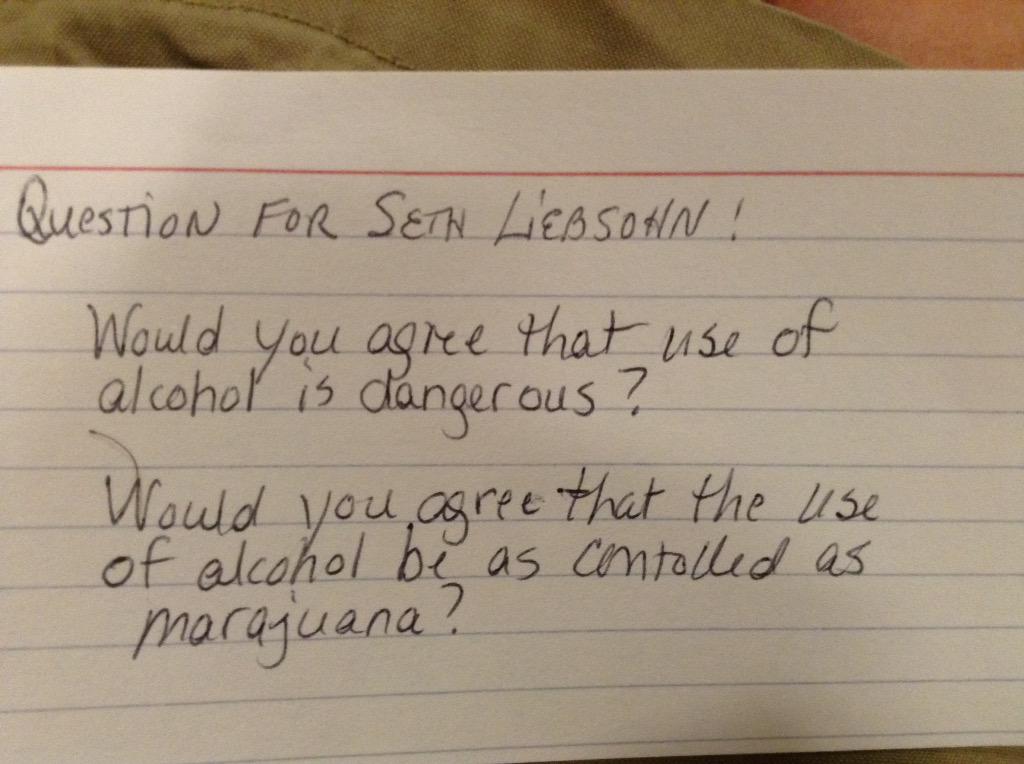 QUESTION FOR SETH LIEBSOHN!
Would you agree that use of
alcohol is dangerous?
Would you agree that the use
of alcohol be as contolled as
marajuana?